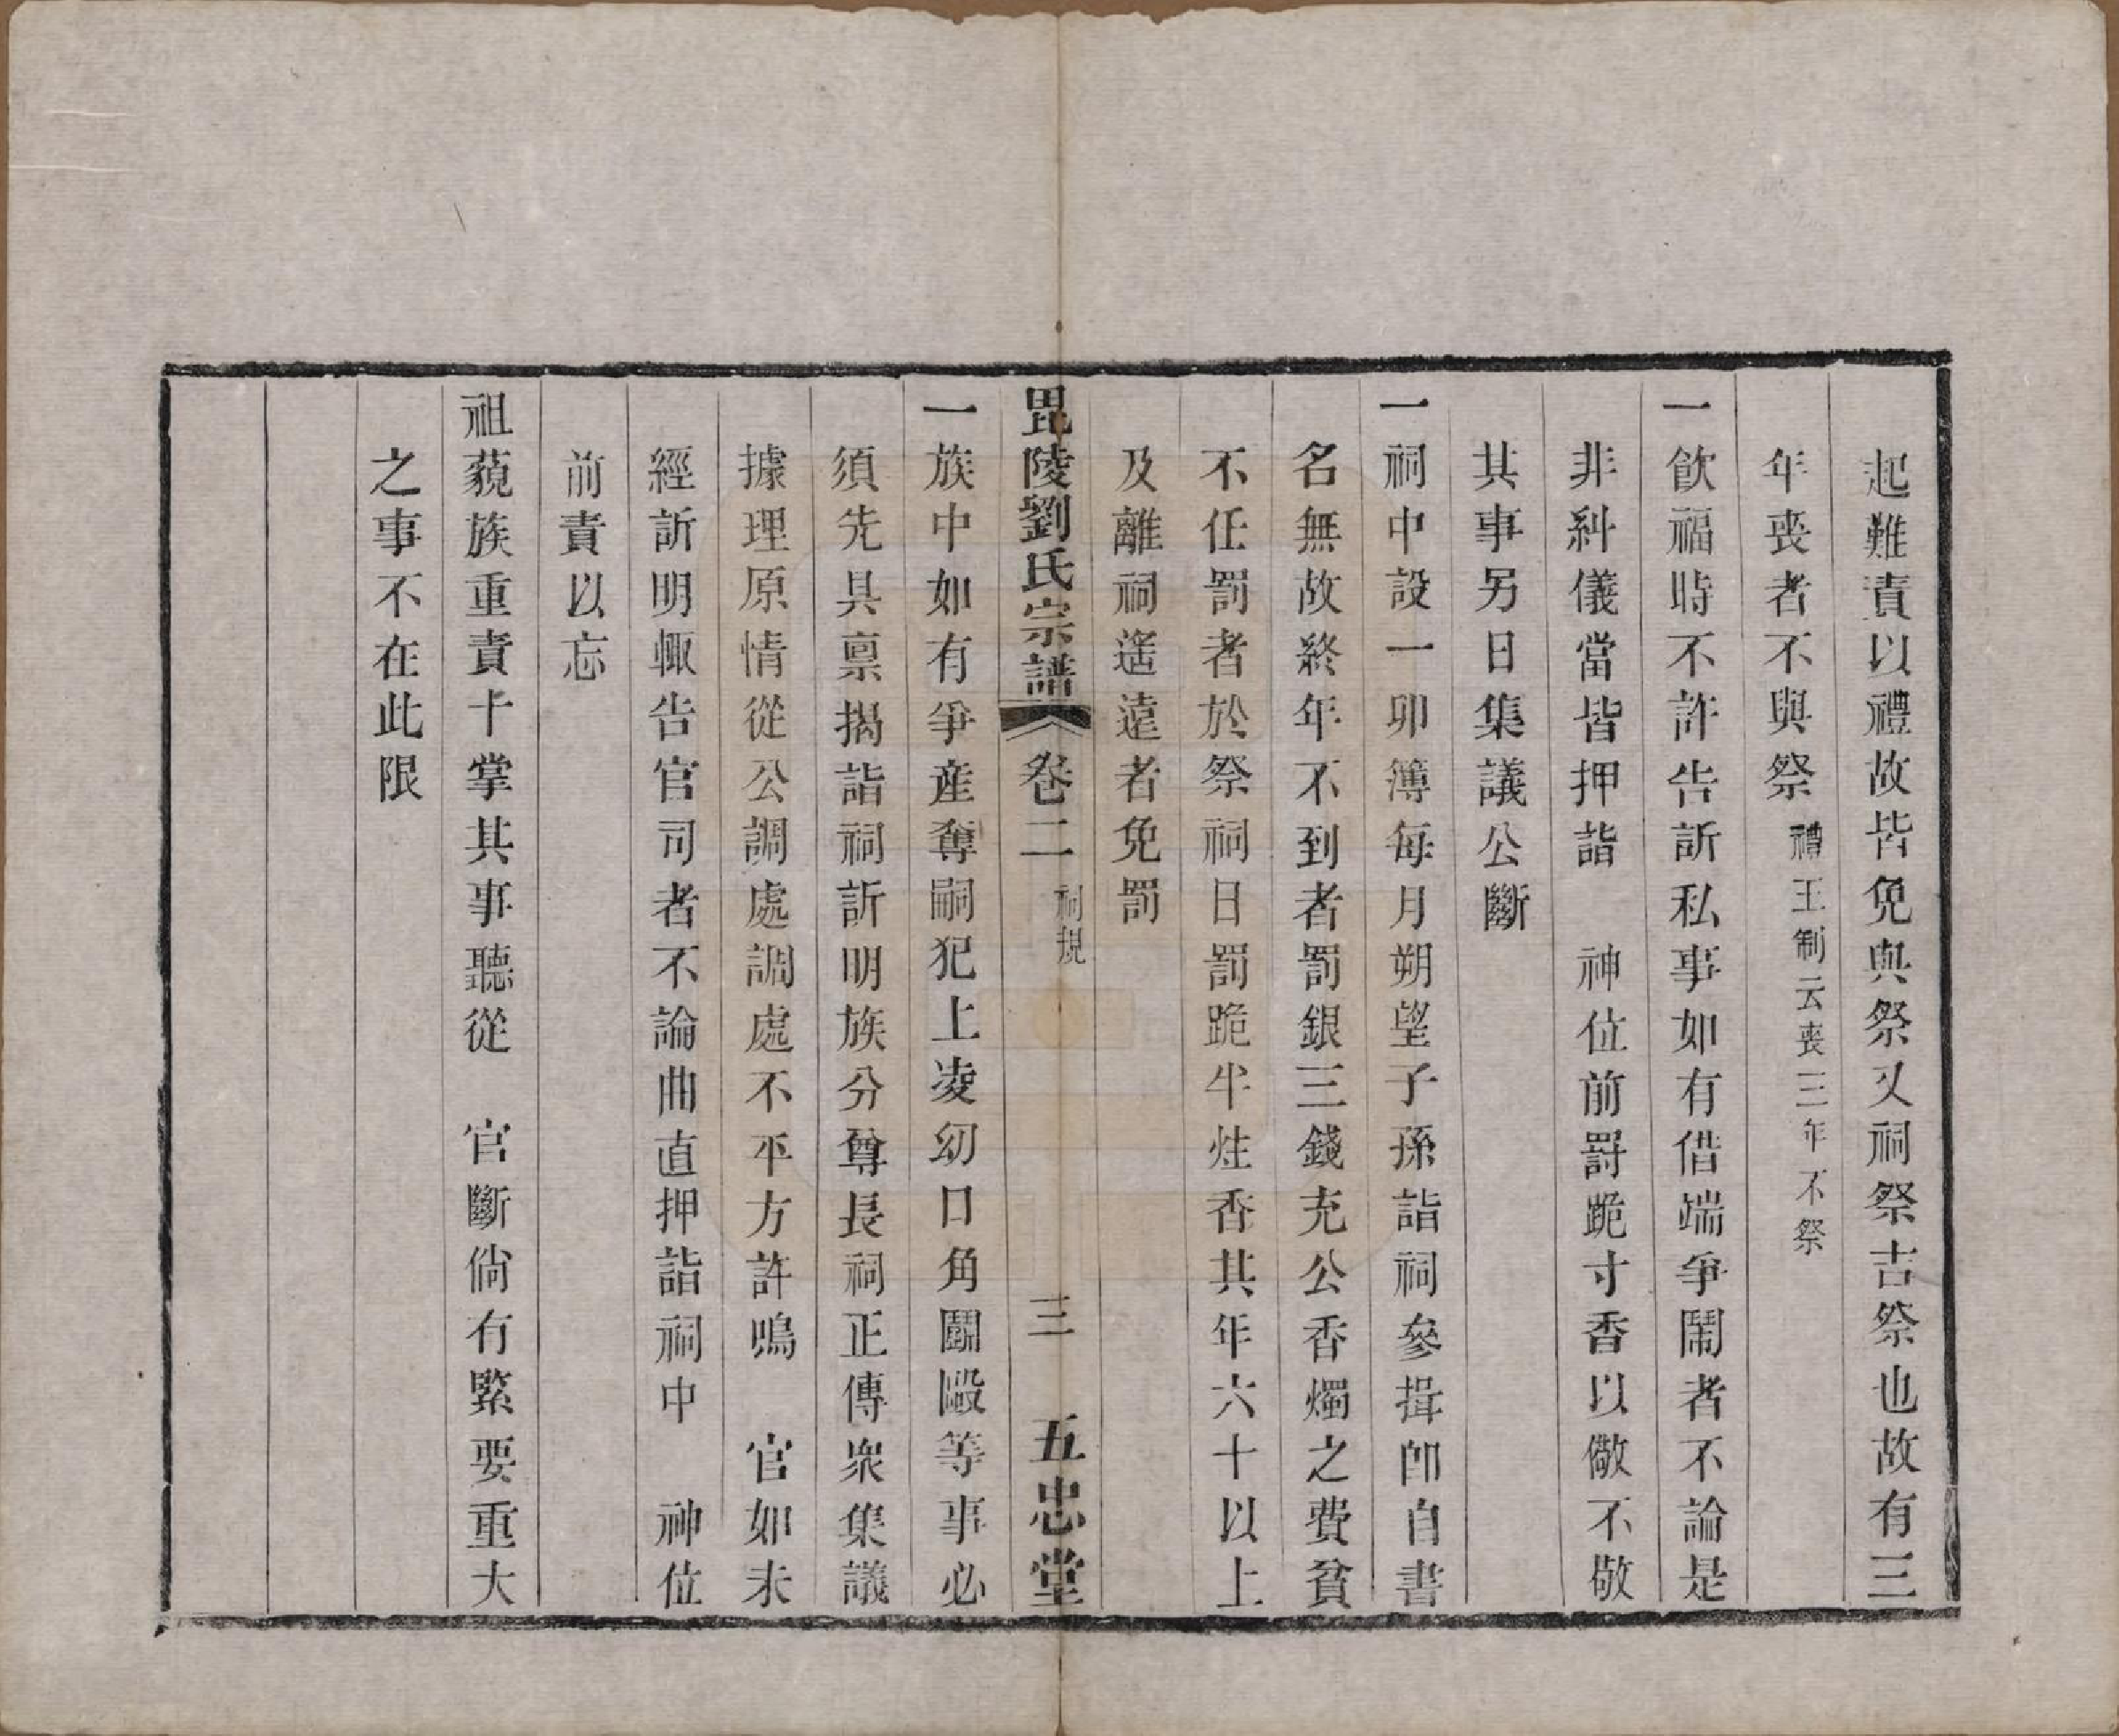 起難責以禮故皆免與祭又祠祭吉祭也故有三
年喪者不與祭禮王制云喪三年不祭
一飲福時不許告訴私事如有借端爭鬧者不論是
非糾儀當皆押詣　神位前罸跪寸香以儆不敬
其事另日集議公斷
一祠中設一卯簿每月朔望子孫詣祠參揖卽自書
名無故終年不到者罰銀三錢充公香燭之費貧
不任罰者於祭祠日罰跪半炷香其年六十以上
及離祠遙遠者免罰
毘陵劉氏宗譜　卷二　祠規　三　五忠堂
一族中如有爭產奪嗣犯上凌幼口角鬬毆等事必
須先具稟揭詣祠訴明族分尊長祠正傳衆集議
據理原情從公調處調處不平方許鳴　官如未
經訴明輙告官司者不論曲直押詣祠中　神位
前責以忘
祖藐族重責十掌其事聽從　官斷倘有緊要重大
之事不在此限